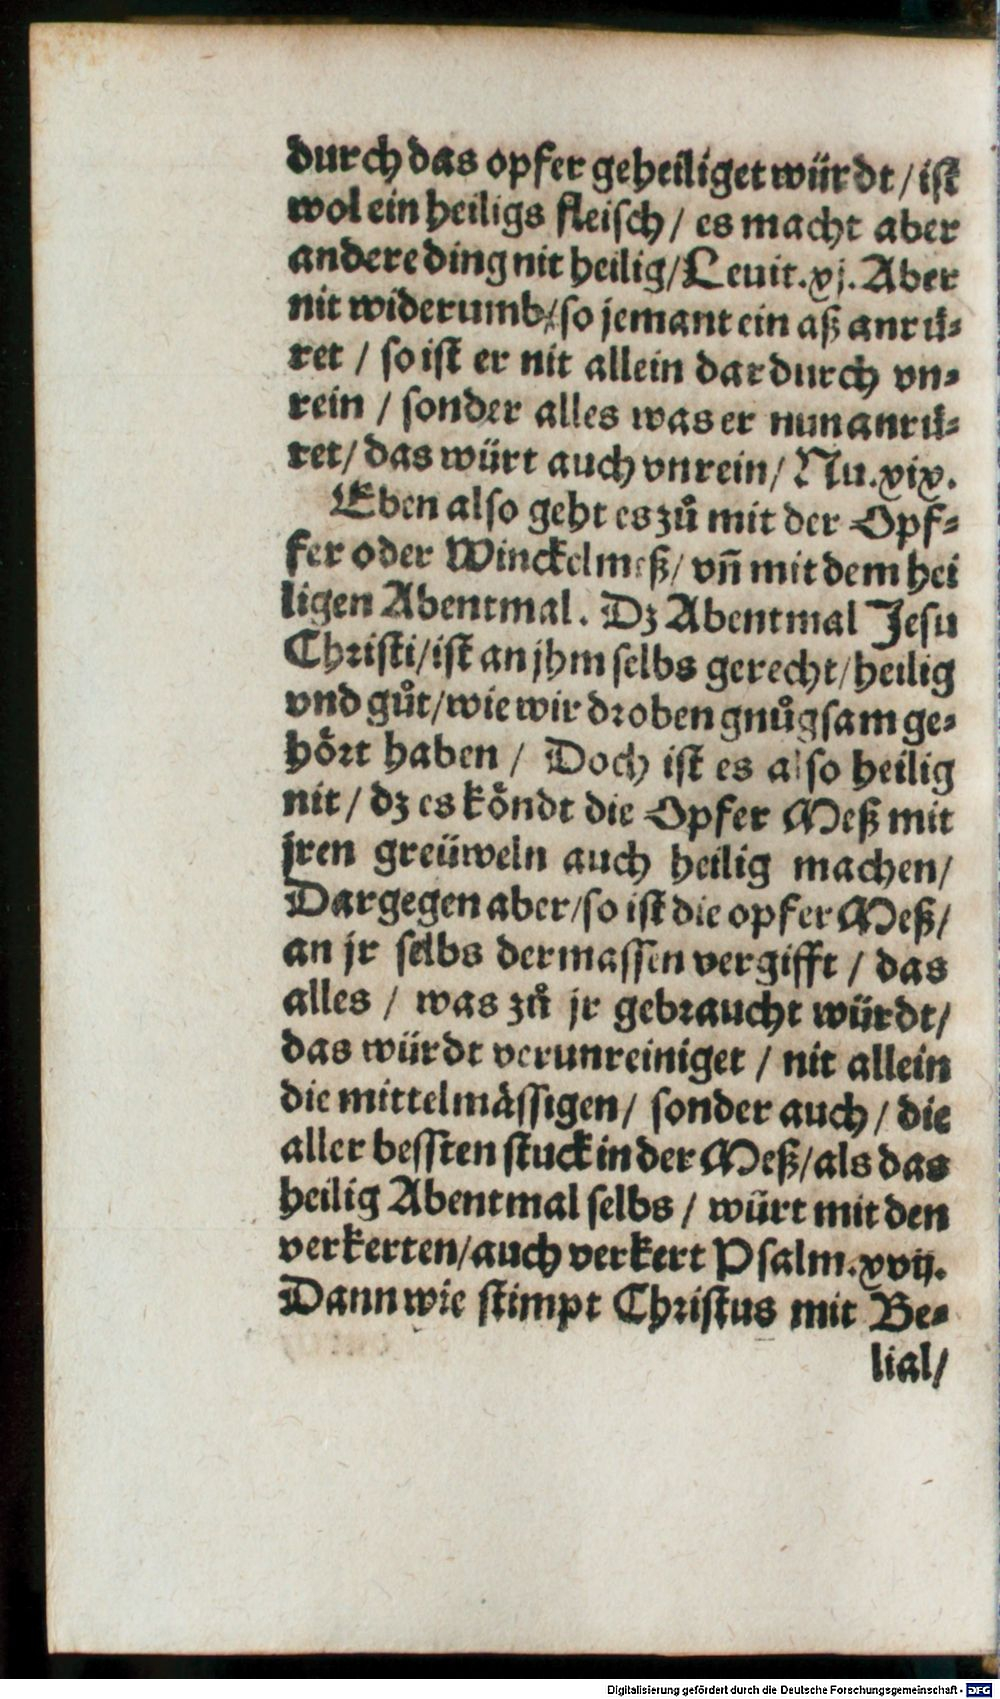 durch das opfer geheiliget würdt / ist
wol ein heiligs fleisch / es macht aber
andere ding nit heilig / Leuit. xj. Aber
nit widerumb / so jemant ein aß anrů⸗
ret / so ist er nit allein dardurch vn⸗
rein / sonder alles was er nun anrů⸗
ret / das würt auch vnrein / Nu. xix.
Eben also geht es zů mit der Opf⸗
fer oder Winckelmeß / vñ mit dem hei
ligen Abentmal. Dz Abentmal Jesu
Christi / ist an jhm selbs gerecht / heilig
vnd gůt / wie wir droben gnůgsam ge⸗
hoͤrt haben / Doch ist es also heilig
nit / dz es koͤndt die Opfer Meß mit
jren greüweln auch heilig machen /
Dargegen aber / so ist die opfer Meß /
an jr selbs dermassen vergifft / das
alles / was zů jr gebraucht würdt /
das würdt verunreiniget / nit allein
die mittelmaͤssigen / sonder auch / die
aller bessten stuck in der Meß / als das
heilig Abentmal selbs / würt mit den
verkerten / auch verkert Psalm. xvij.
Dann wie stimpt Christus mit Be⸗
lial /
Digitalisierung gefördert durch die Deutsche Forschungsgemeinschaft - DFG